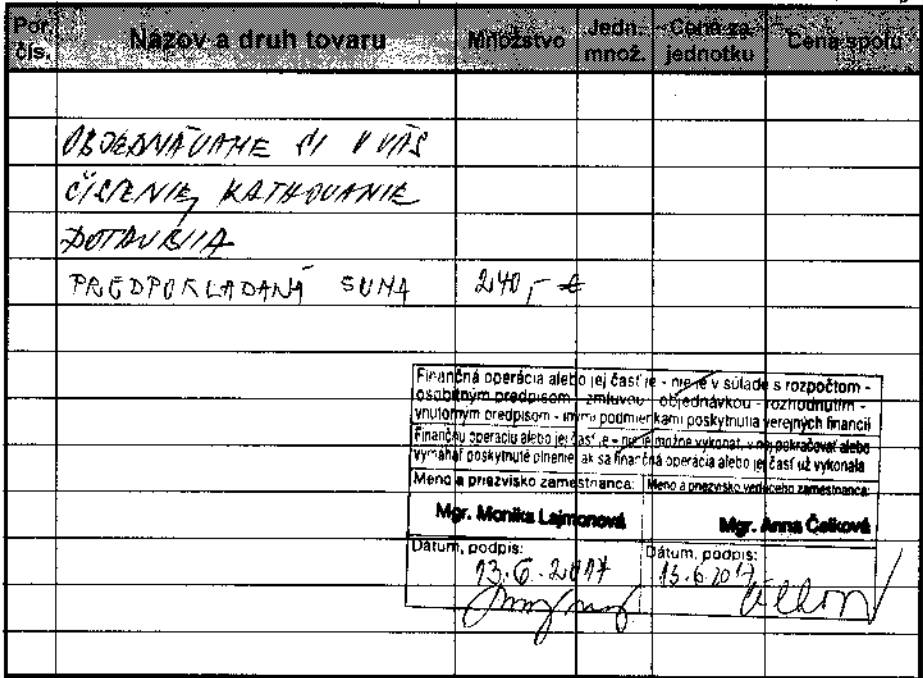 Por. čís. Názov a druh tovaru Množstvo Jedn. množ. Cena za jednotku Cena spolu
OBJEDNÁVAME SI U VÁS
ČISTENIE,
PREDPOKLADANÁ SUMA 240,- €
Finančná operácia alebo jej časť je - nie je v súlade s rozpočtom -
osobitným predpisom - zmluvou - objednávkou - rozhodnutím -
vnútorným predpisom - inými podmienkami poskytnutia verejných financií
Finančnú operáciu alebo jej časť je - nie je možné vykonať, v nej pokračovať alebo
vymáhať poskytnuté plnenie, ak sa finančná operácia alebo jej časť už vykonala
Meno a priezvisko zamestnanca: Meno a priezvisko vedúceho zamestnanca:
Mgr. Monika Lajmonová Mgr. Anna Čelková
Dátum, podpis: Dátum, podpis:
13.6.2017 13.6.2017